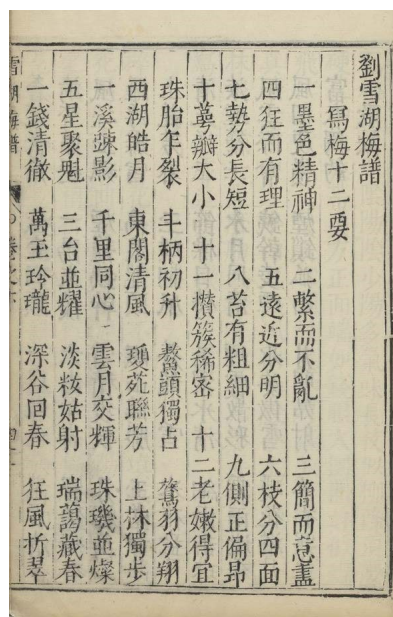 劉雪湖梅譜
寫梅十二要
一墨色精神 二繁而不亂 三簡而意盡
四狂而有理 五遠近分明 六枝分四面
七勢分長短 八苔有粗細 九側正偏昂
十萼瓣大小 十一攅簇稀密 十二老嫩得宜
珠胎乍裂 斗柄初升 鰲頭獨占 鴛羽分翔
西湖皓月 東閣清風 瓊苑聯芳 上林獨步
一溪踈影 千里同心 雲月交輝 珠璣並燦
五星聚魁 三台並耀 淡粧姑射 瑞藹藏春
一錢清徹 萬玉玲瓏 深谷回春 狂風折翠
雪湖梅譜 卷之